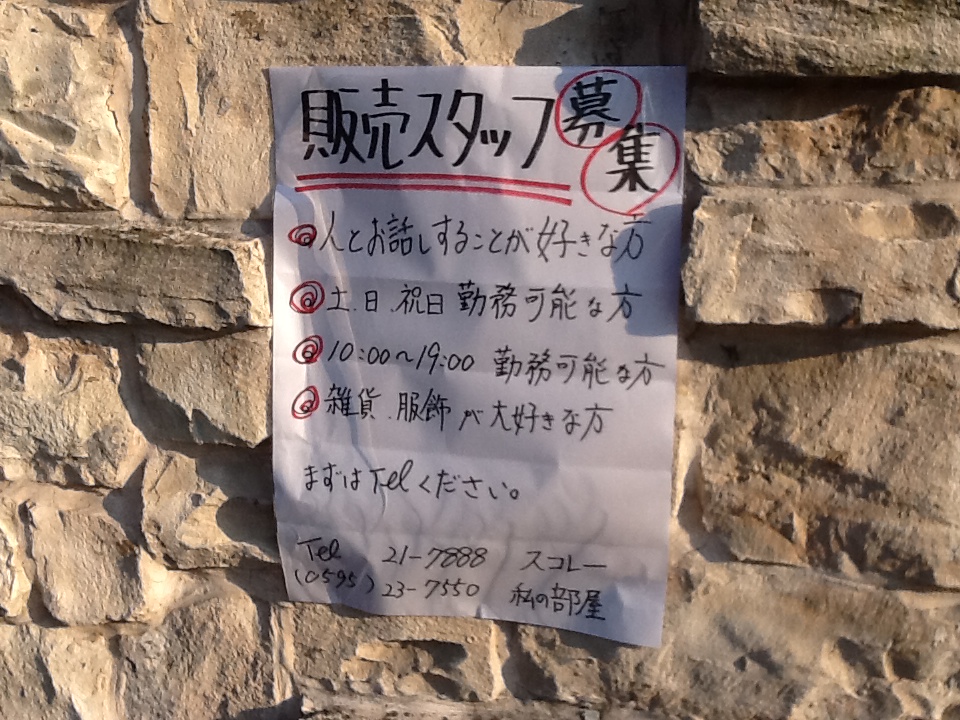 販売スタッフ募集
人とお話しすることが好きな方
土.日.祝日勤務可能な方
10:00～19:00 勤務可能な方
雑貨.服飾が大好きな方
まずはTelください。
Tel 21-7888 スコレー
(0595) 23-7550 私の部屋